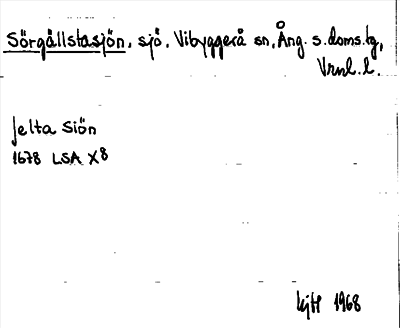 Sörgållstasjön, sjö, Vibyggerå sn, Ång. s. doms. tg,
Vrnl. l.
Jelta Siön
1678 LSA X8
1968